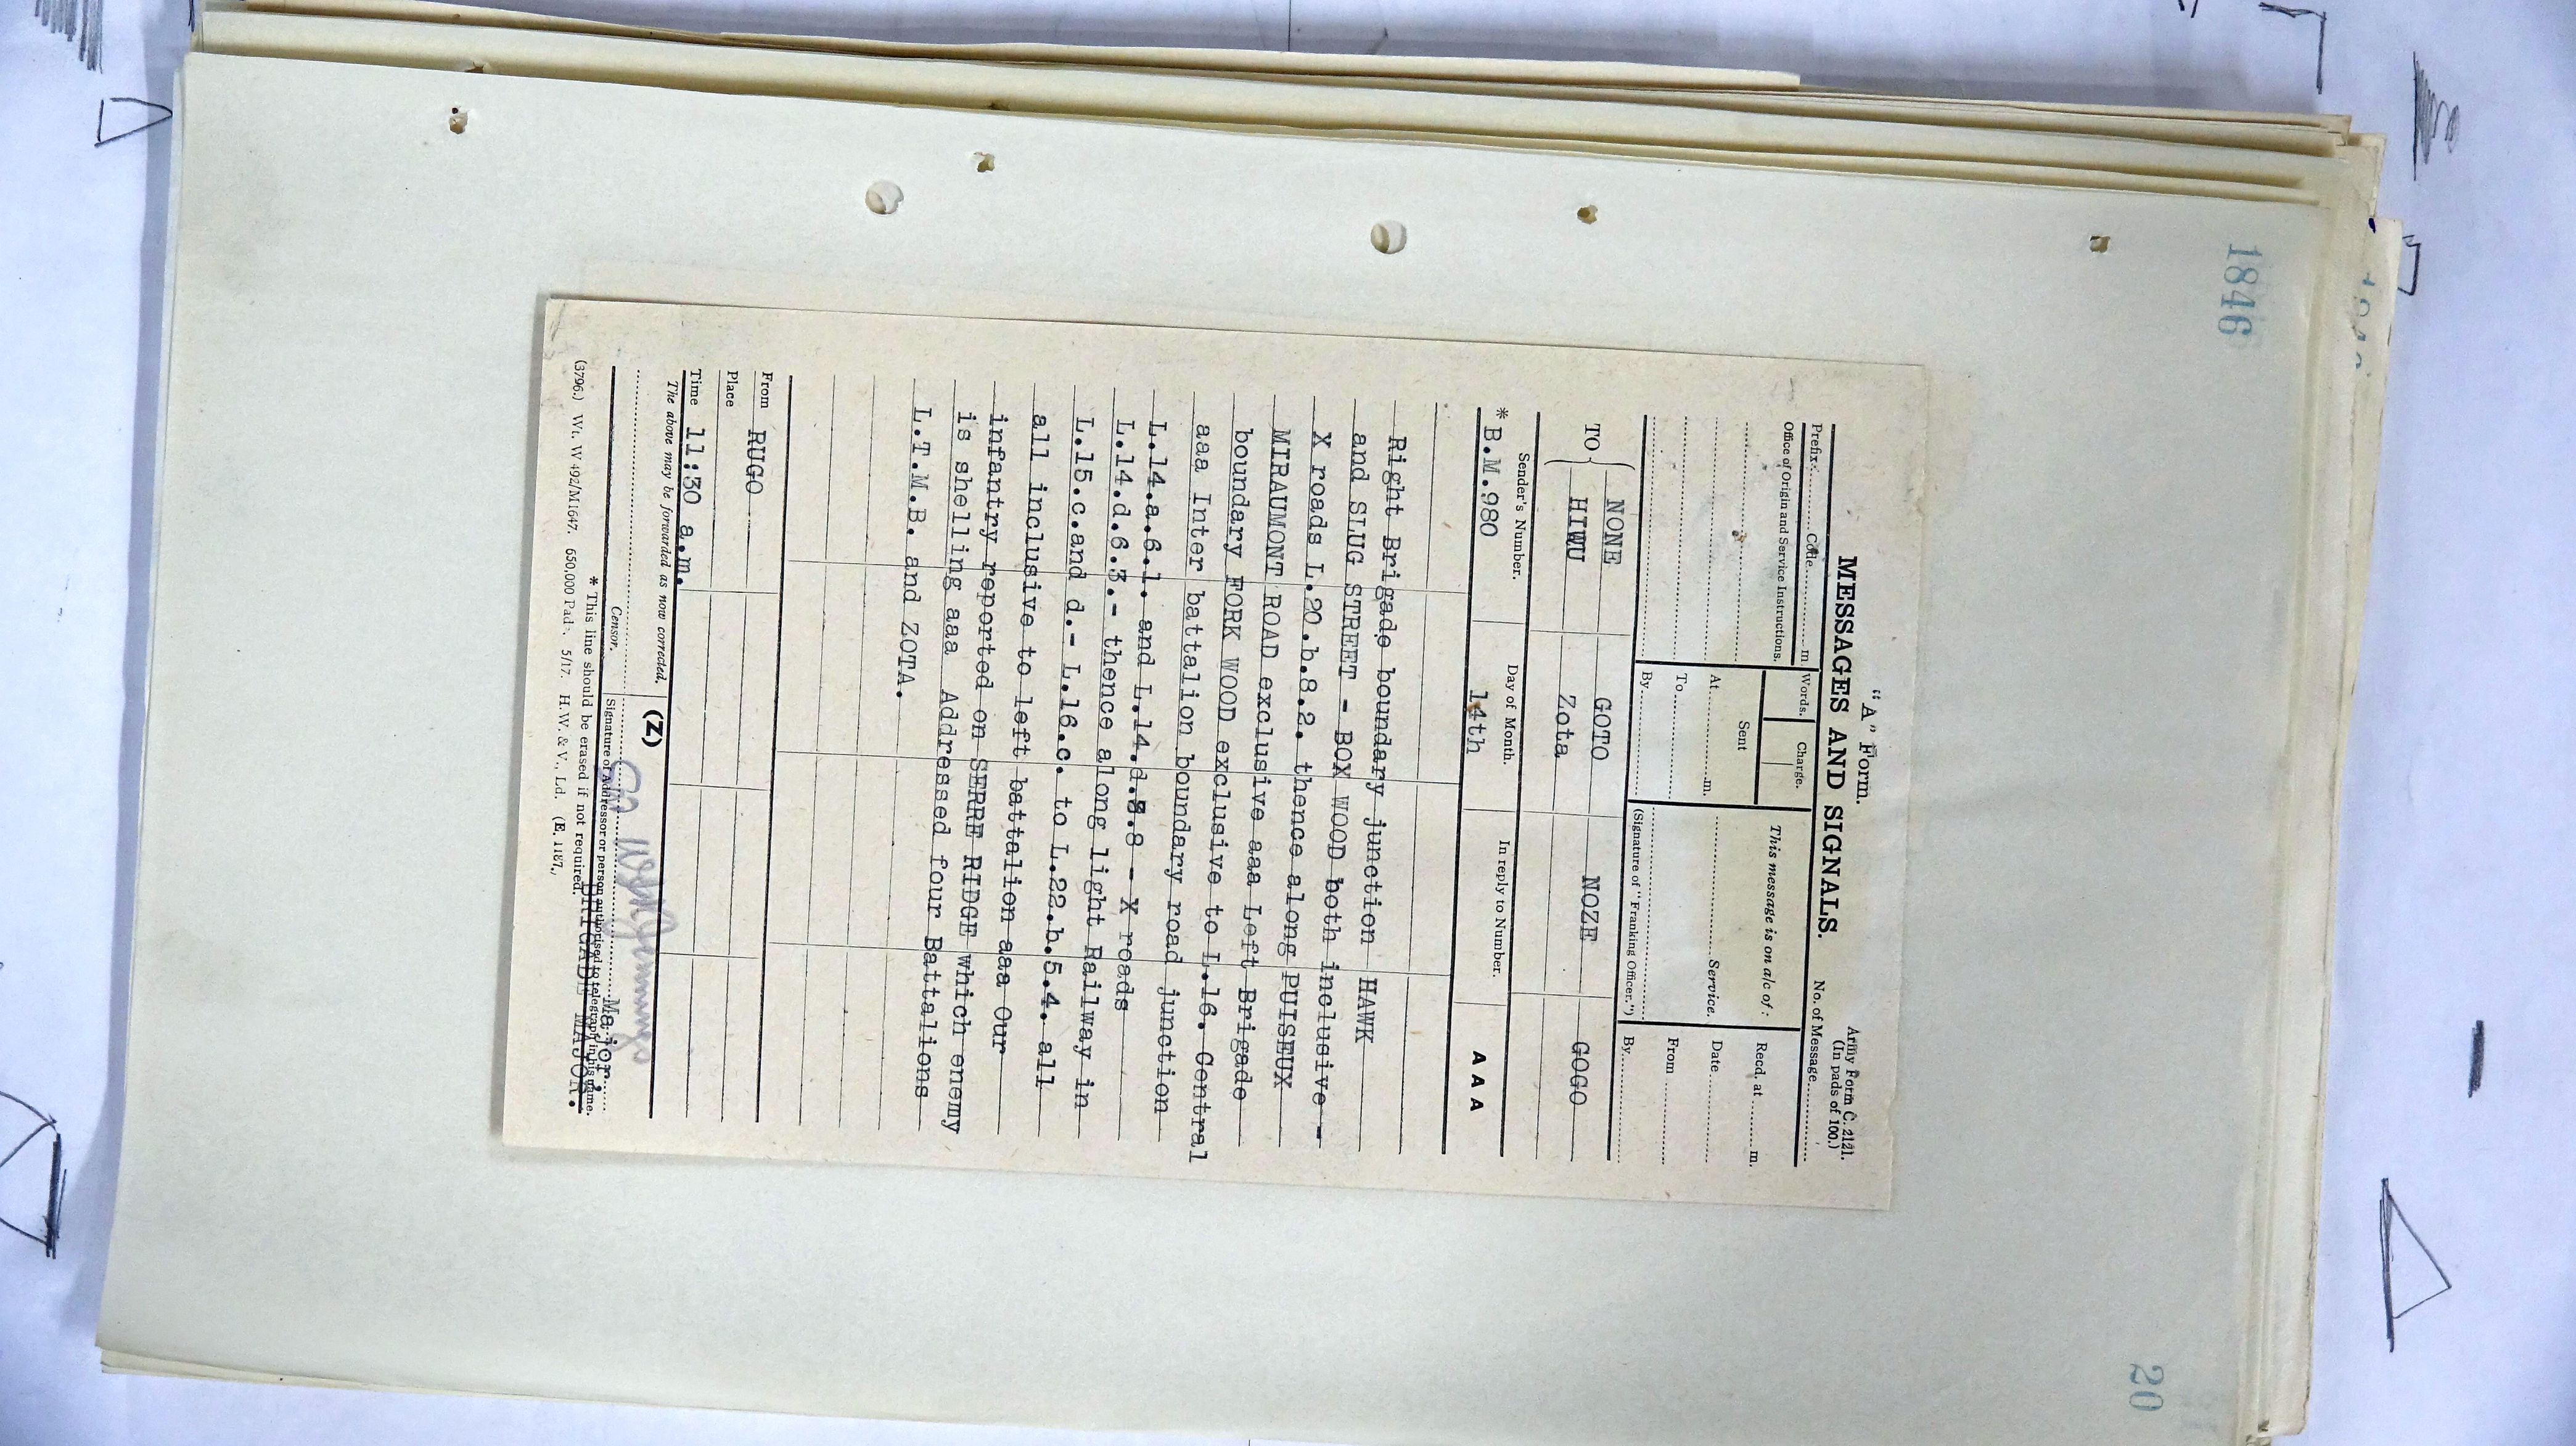 1846
"A" Form.
Army Form C. 2121.
(In pads of 100.)
MESSAGES AND SIGNALS.
No. of Message
Prefix Code m
Words.
Charge.
This message is on a/c of:
Recd. at m.
Office of Origin and Service Instructions.
Sent
Service.
Date
At m.
To
From
By
(Signature of "Franking Officer.")
By
TO
NONE GOTO NOZE GOGO
HIWU Zota
Sender's Number.
Day of Month.
In reply to Number.
* B.M.980 14th AAA
Right Brigade boundary junction HAWK
and SLUG STREET - BOX WOOD both inclusive -
X roads L.20.b.8.2. thence along PUISEUX
MIRAUMONT ROAD exclusive aaa Left Brigade
boundary FORK WOOD exclusive to L.16. Central
aaa Inter battalion boundary road junction
L.14.a.6.1. and L.14.d.8.8 - X roads
L.14.d.6.3.- thence along light Railway in
L.15.c.and d.- L.16.c. to L.22.b.5.4. all
all inclusive to left battalion aaa Our
infantry reported on SERRE RIDGE which enemy
is shelling aaa Addressed four Battalions
L.T.M.B. and ZOTA.
From RUGO
Place
Time 11:30 a.m.
The above may be forwarded as now corrected.
(Z)
Major.
Censor.
Signature of Addressor or person authorised to telegraph in his name.
BRIGADE MAJOR.
* This line should be erased if not required.
(3796.) Wt. W 492/M1647. 650,000 Pads. 5/17. H.W. & V., Ld. (E. 1187.)
20